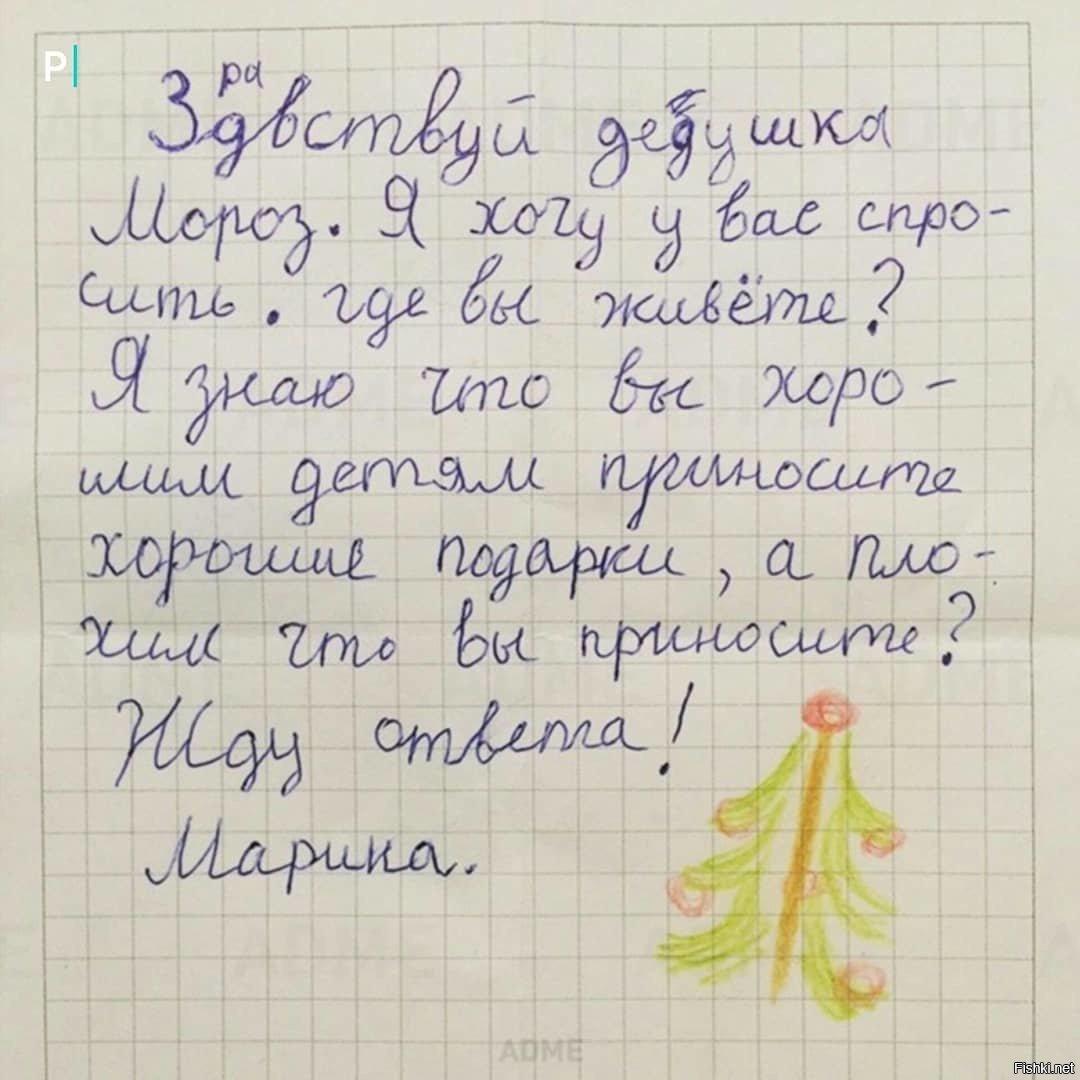 P|
Здравствуй дедушка
Мороз. Я хочу у вас спро-
сить. где вы живёте?
Я знаю что вы хоро-
шим детям приносите
хорошие подарки, а пло-
хим что вы приносите?
Жду ответа!
Марина.
ADME
Fishki.net